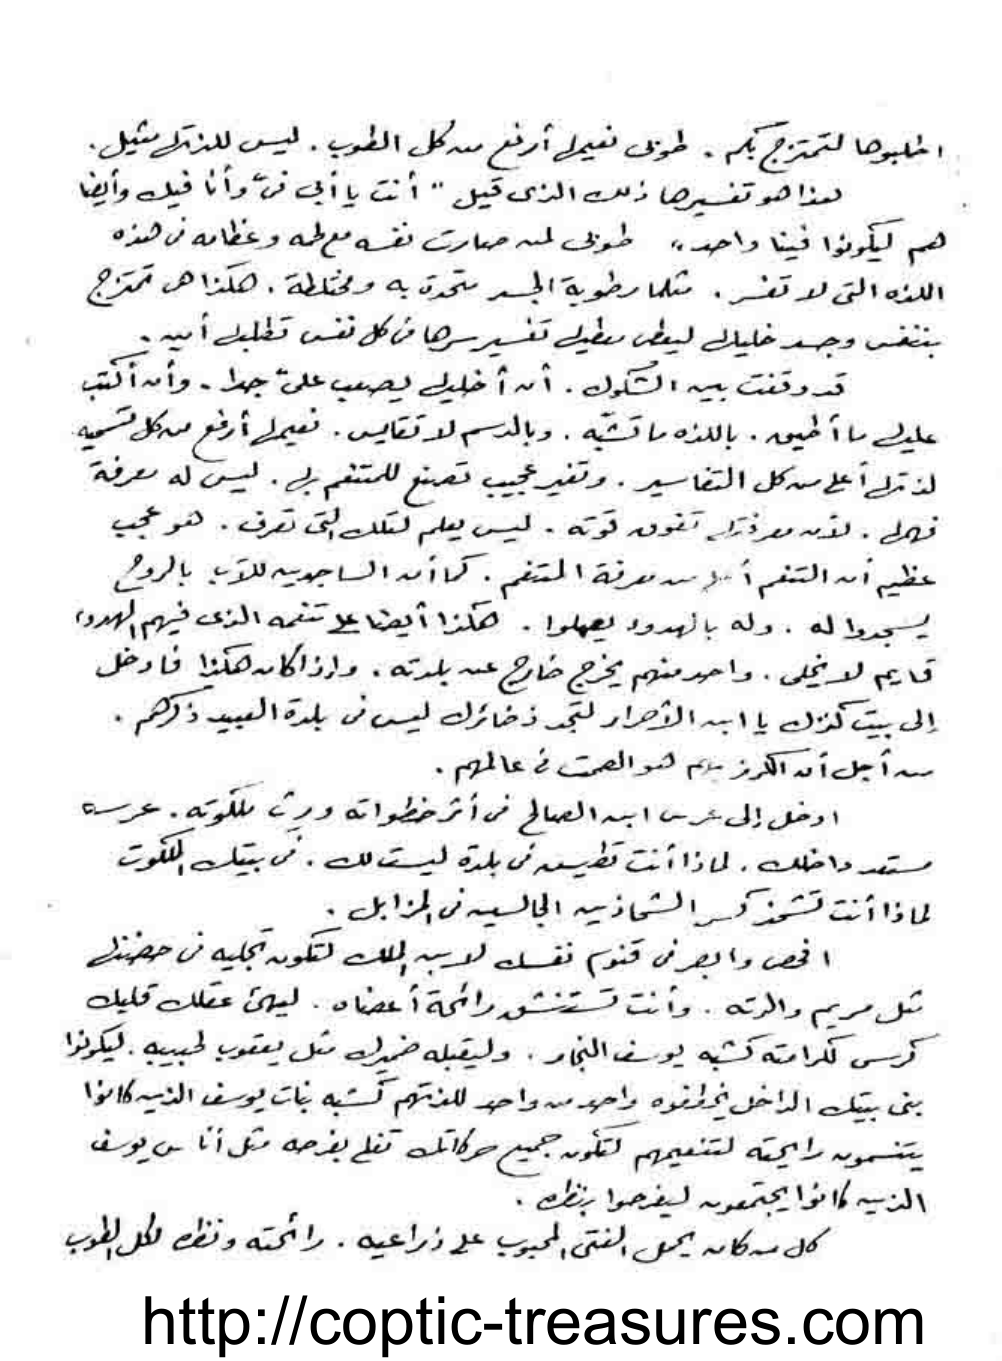 اطلبوها لتمتزج بكم . طوبى نعيمها أرفع من كل الطوب . ليس للذتها مثيل .
هذا هو تفسيرها ذلك الذى قيل " أنت يا أبى فىّ وأنا فيك وأيضا
هم ليكونوا فينا واحد " طوبى لمن صارت نفسه مع لحمه وعظامه فى هذه
اللذه التى لا تفسر . مثلما رطوبة الجسد متحدة به ومختلطة . هكذا هى تمتزج
بنفس وجسد خليلها ليعطى تفسير سرها فى كل نفس تطلبها أمين .
قد وقفت بين الشكوك . أن أخليك يصعب علىّ جدا . وأن أكتب
عليك ما أطيق . باللذه ما تشبّه . وبالرسم لا تقايس . نعيمها أرفع من كل تسميه
لذتها أعلى من كل التفاسير . وتغير عجيب تصنع للمتنعم بها . ليس له معرفة
فيها . لأن معرفتها تفوق قوته . ليس يعلم لتلك التى تعرف . هو عجب
عظيم أن التنعم من معرفة المتنعم . كما أن الساجدين للآب بالروح
يسجدوا له . وله بالهدوء يهللوا . هكذا أيضا على تنعمه الذى فيهم الهدوء
قايم لا يخلى . واحد منهم يخرج خارج عن بلدته . وإذا كان هكذا فادخل
إلى بيت كنزك يا ابن الأحرار لتجد ذخائرك ليس فى بلدة العبيد ذكرهم .
من أجل أن الكرز بهم هو الصمت فى عالمهم .
ادخل إلى عرس ابن الصالح فى أثر خطواته ورث ملكوته . عرسه
مستعد داخلك . لماذا أنت تطيس فى بلدة ليست لك . فى بيتك الملكوت
لماذا أنت تشحذ كسر الشحاذين الجالسين فى المزابل .
افحص وابصر فى قنوم نفسك لابن الملك لتكون تجليه فى حضنها
مثل مريم والدته . وأنت تستنشق رائحة أعضاه . ليهئ عقلك قلبك
كرسى لكرامته كشبه يوسف النجار . وليقبله ضميرك مثل يعقوب لحبيبه . ليكونوا
بنى بيتك الداخل يخطفوه واحد من واحد للذتهم كشبه بنات يوسف الذين كانوا
يتنسمون رايحته لتنعيمهم لتكون جميع حركاتك تغلى بفرحه مثل أناس يوسف
الذين كانوا يجتمعون ليفرحوا بنظره .
كل من كان يحمل الفتى المحبوب على ذراعيه . رائحته ونظره لكل الطوب
http://coptic-treasures.com